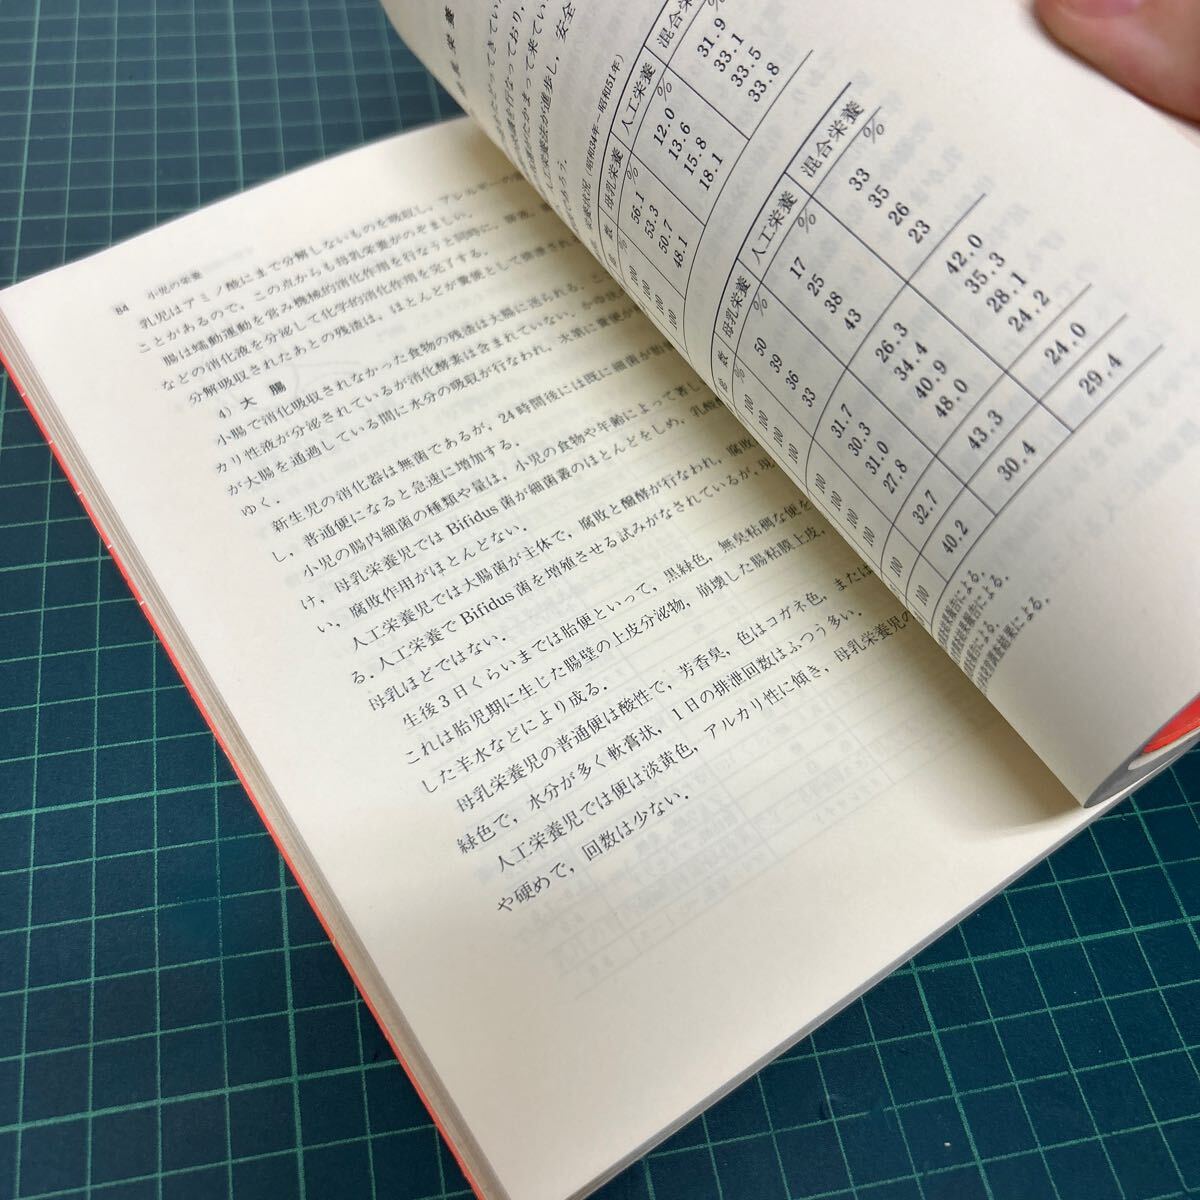 84　小児の栄養
乳児はアミノ酸にまで分解しないものを吸収し，アレルギーの
ことがあるので，この点からも母乳栄養がのぞましい．
腸は蠕動運動を営み機械的消化作用を行なうと同時に，
などの消化液を分泌して化学的消化作用を完了する．
分解吸収されたあとの残渣は，ほとんどが糞便として排泄され
4) 大　腸
小腸で消化吸収されなかった食物の残渣は大腸に送られる．
カリ性液が分泌されているが消化酵素は含まれていない．
が大腸を通過している間に水分の吸収が行なわれ，次第に糞便
ゆく．
新生児の消化器は無菌であるが，24時間後には既に細菌が
し，普通便になると急速に増加する．
小児の腸内細菌の種類や量は，小児の食物や年齢によって著し
け，母乳栄養児ではBifidus菌が細菌叢のほとんどをしめ，乳酸
い，腐敗作用がほとんどない．
人工栄養児では大腸菌が主体で，腐敗と醗酵が行なわれ，腐敗
る．人工栄養でBifidus菌を増殖させる試みがなされているが，現
母乳ほどではない．
生後3日くらいまでは胎便といって，黒緑色，無臭粘稠な便を
これは胎児期に生じた腸壁の上皮分泌物，崩壊した腸粘膜上皮，
した羊水などにより成る．
母乳栄養児の普通便は酸性で，芳香臭，色はコガネ色，または
緑色で，水分が多く軟膏状，1日の排泄回数はふつう多い．
人工栄養児では便は淡黄色，アルカリ性に傾き，母乳栄養児の
や硬めで，回数は少ない．
栄養状況（昭和34年－昭和51年）
総　数　母乳栄養　人工栄養　混合栄養
%　%　%　%
100　56.1　12.0　31.9
100　53.3　13.6　33.1
100　50.7　15.8　33.5
100　48.1　18.1　33.8
総　数　母乳栄養　人工栄養　混合栄養
%　%　%　%
100　50　17　33
100　39　25　35
100　36　38　26
100　33　43　23
100　31.7　26.3　42.0
100　30.3　34.4　35.3
100　31.0　40.9　28.1
100　27.8　48.0　24.2
100　32.7　43.3　24.0
100　40.2　30.4　29.4